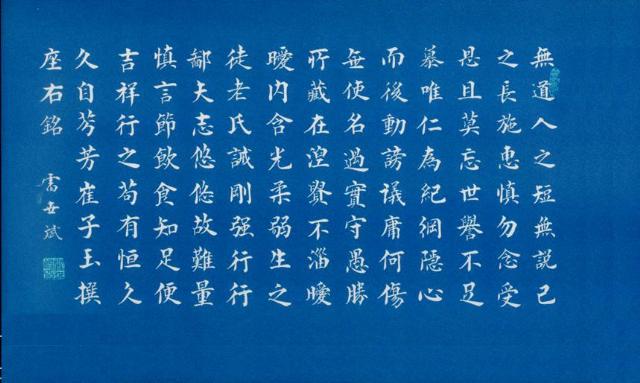 無道人之短無說己
之長施惠慎勿念受
恩且莫忘世譽不足
慕唯仁為紀綱隱心
而後動謗議庸何傷
無使名過實守愚勝
所藏在涅貴不淄曖
曖內含光柔弱生之
徒老氏誡剛强行行
鄙大志悠悠故難量
慎言節飲食知足便
吉祥行之苟有恒久
久自芬芳崔子玉撰
座右銘 雷世斌